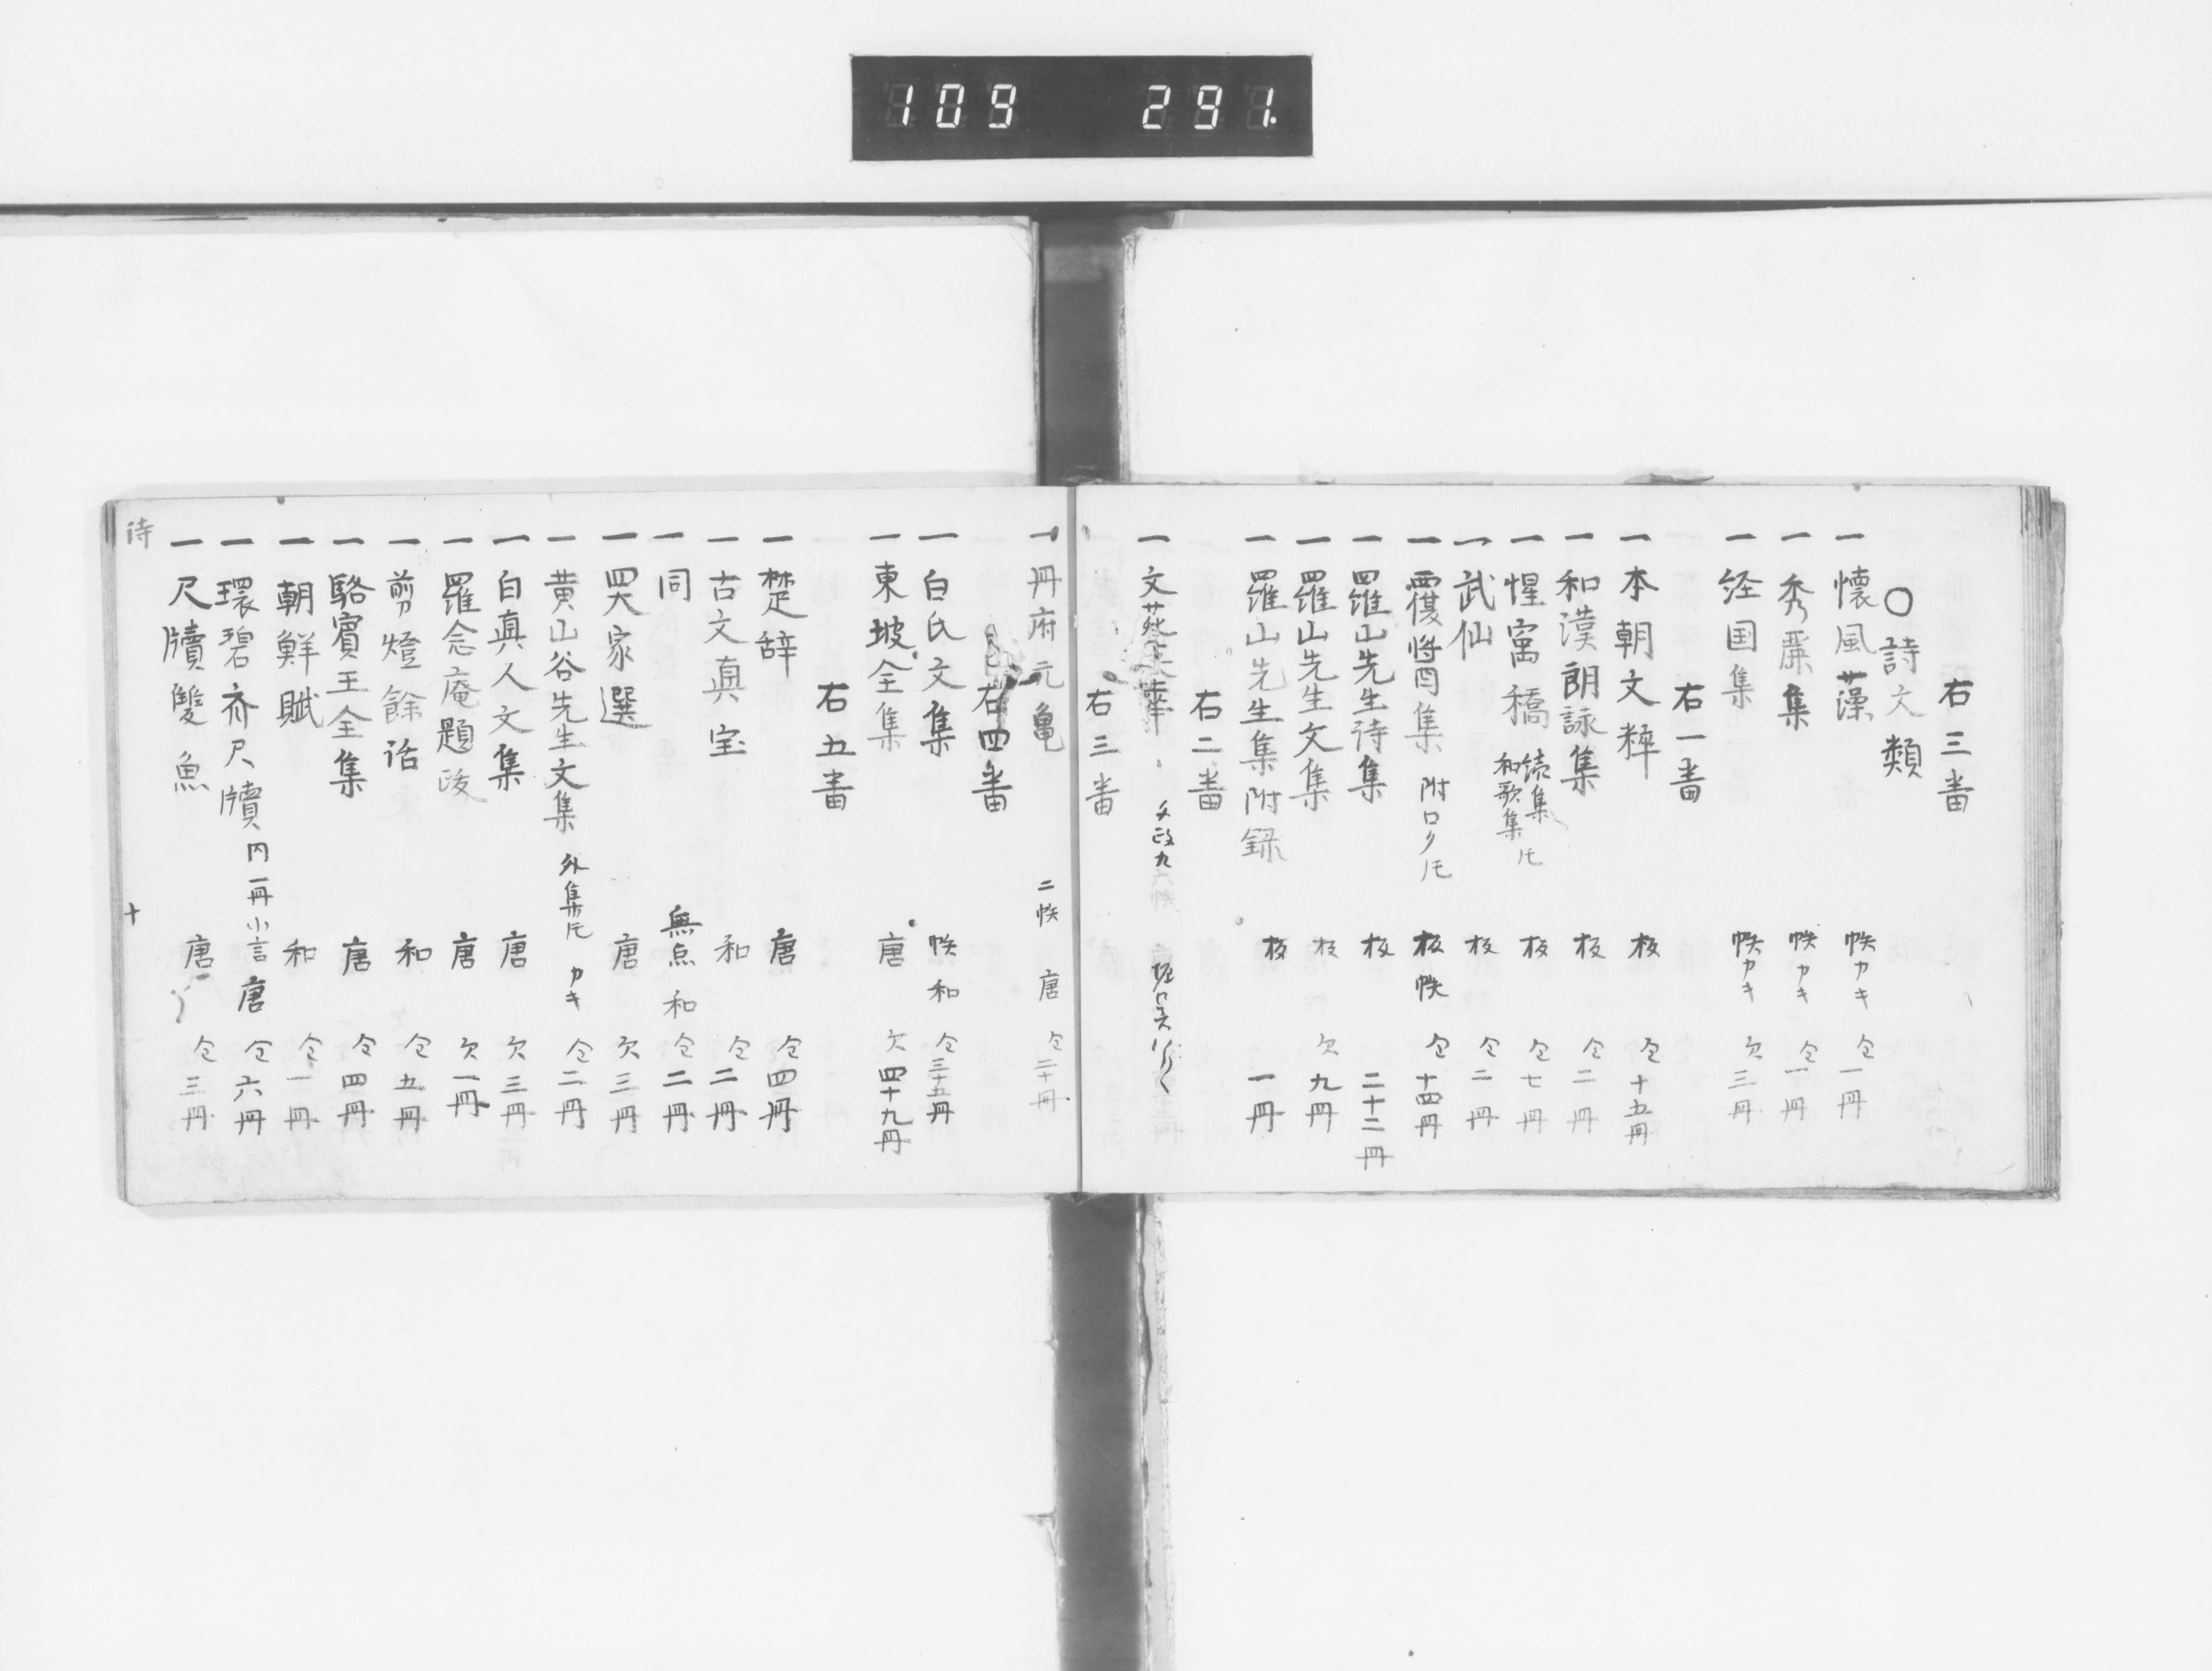 109 291.
右三畨
○詩文類
一懐風藻 帙カキ 仝一冊
一秀麗集 帙カキ 仝一冊
一経国集 帙カキ 欠三冊
右一畨
一本朝文粹 板 仝十五冊
一和漢朗詠集 板 仝二冊
一惺窩稿 続集 和歌集 厇 板 仝七冊
一武仙 板 仝二冊
一覆醤集 附口ク厇 板帙 仝十四冊
一羅山先生待集 板 二十二冊
一羅山先生文集 板 欠九冊
一羅山先生集附録 板 一冊
右二畨
一文苑英華 文政九
右三畨
一冊府元亀 二帙 唐 仝二十冊
右四畨
一白氏文集 帙和 仝三十五冊
一東坡全集 唐 欠四十九冊
右五畨
一楚辞 唐 仝四冊
一古文真宝 和 仝二冊
一同 無点 和 仝二冊
一四大家選 唐 欠三冊
一黄山谷先生文集 外集厇 カキ 仝二冊
一白真人文集 唐 欠三冊
一羅念庵題跋 唐 欠一冊
一剪燈餘话 和 仝五冊
一駱賓王全集 唐 仝四冊
一朝鮮賦 和 仝一冊
一環碧斎尺牘 内一冊小言 唐 仝六冊
一尺牘雙魚 唐 仝三冊
待 十